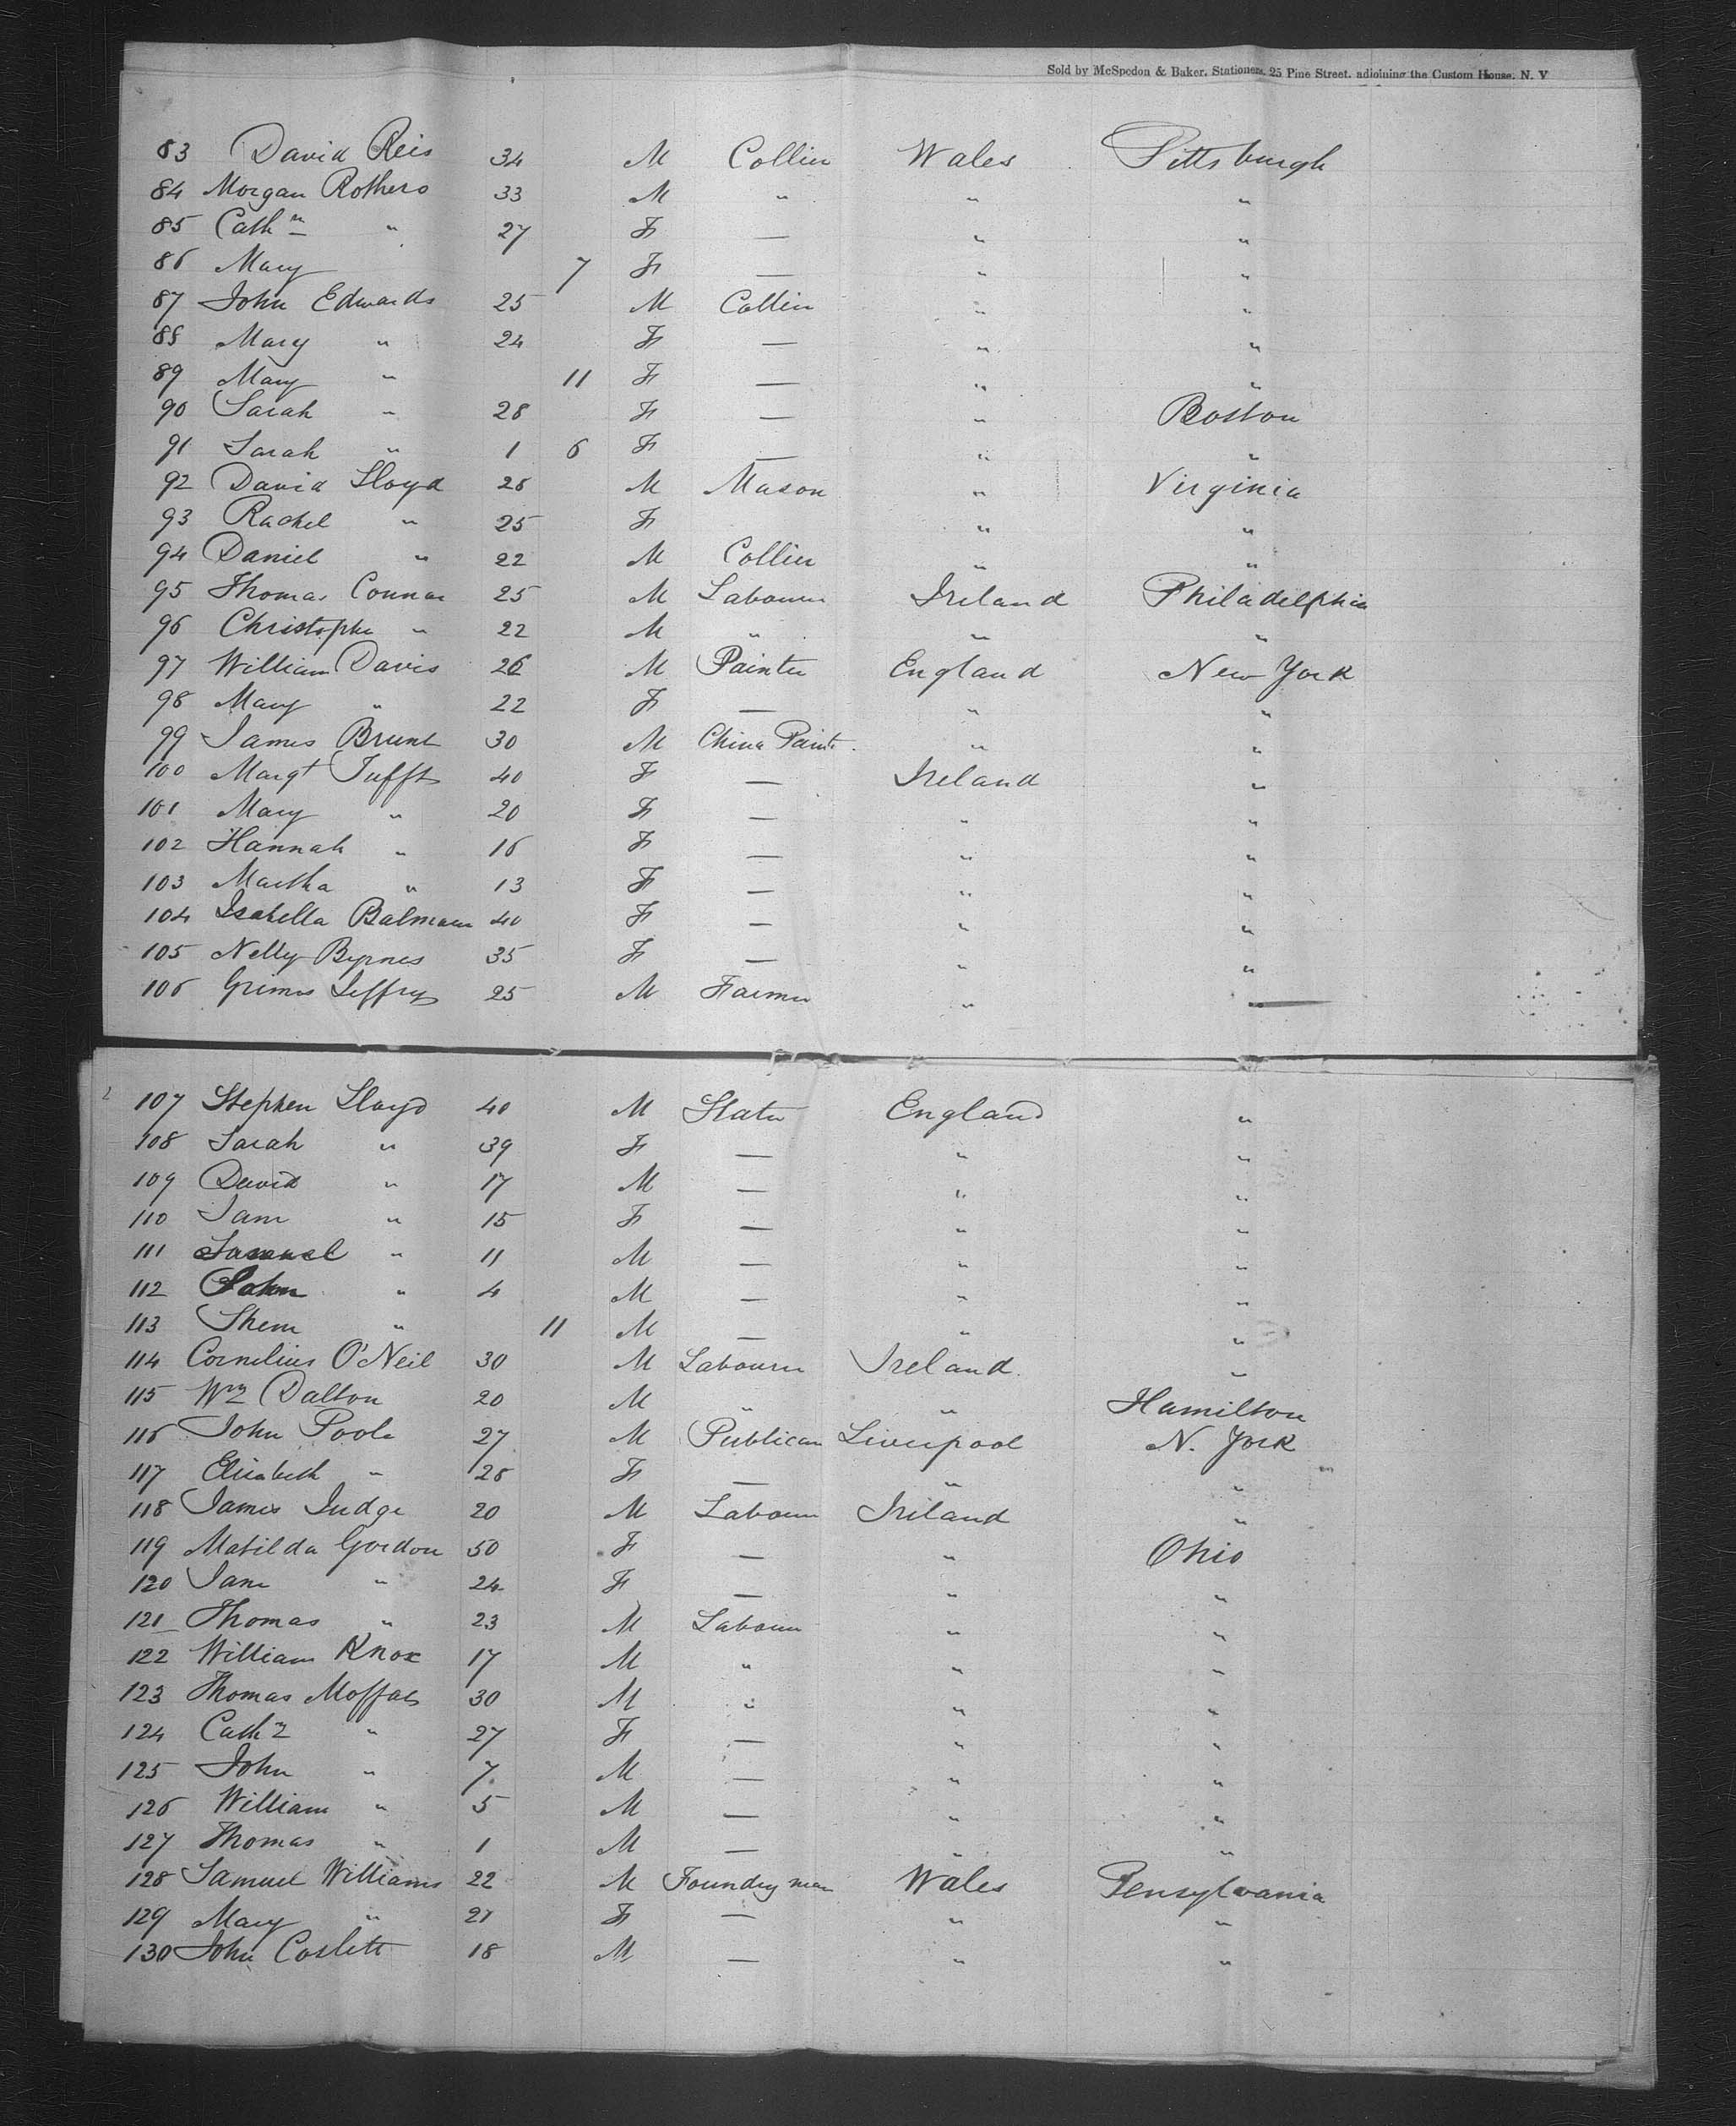 Sold by McSpedon & Baker, Stationers, 25 Pine Street, adjoining the Custom House, N. Y
83 David Reis 34 M Collier Wales Pittsburgh
84 Morgan Rothers 33 M " " "
85 Cathn " 27 F — " "
86 Mary 7 F — " "
87 John Edwards 25 M Collier " "
88 Mary " 24 F — " "
89 Mary " 11 F — " "
90 Sarah " 28 F — " Boston
91 Sarah " 1 6 F — " "
92 David Lloyd 28 M Mason " Virginia
93 Rachel " 25 F " "
94 Daniel " 22 M Collier " "
95 Thomas Connar 25 M Labourer Ireland Philadelphia
96 Christopher " 22 M " " "
97 William Davis 26 M Painter England New York
98 Mary " 22 F — " "
99 James Brunt 30 M China Paint. " "
100 Margt Tufft 40 F — Ireland "
101 Mary " 20 F — " "
102 Hannah " 16 F — " "
103 Martha " 13 F — " "
104 Isabella 40 F — " "
105 Nelly Byrnes 35 F — " "
106 Grimes Jeffrys 25 M Farmer " "
107 Stephen Lloyd 40 M Slater England "
108 Sarah " 39 F — " "
109 David " 17 M — " "
110 Jane " 15 F — " "
111 Samuel " 11 M — " "
112 John " 4 M — " "
113 Shem " 11 M — " "
114 Cornelius O'Neil 30 M Labourer Ireland "
115 Wm Dalton 20 M " " Hamilton
116 John Poole 27 M Publican Liverpool N. York
117 Elizabeth " 28 F — " "
118 James Judge 20 M Labourer Ireland "
119 Matilda Gordon 50 F — " Ohio
120 Jane " 24 F — " "
121 Thomas " 23 M Labourer " "
122 William Knox 17 M " " "
123 Thomas Moffat 30 M " " "
124 Cathn " 27 F — " "
125 John " 7 M — " "
126 William " 5 M — " "
127 Thomas " 1 M — " "
128 Samuel Williams 22 M Foundry man Wales Pensylvania
129 Mary " 21 F — " "
130 John Coslett 18 M — " "